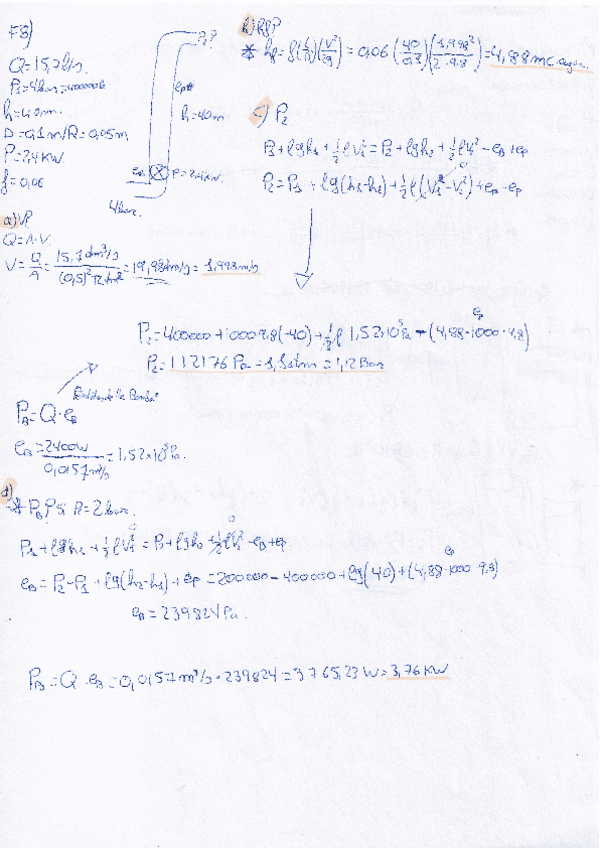 F8)
Q=15,7 l/s.
P1=4bar=400000
h=40m.
D=0,1m/R=0,05m
P=2,4KW.
f=0,06
P2?
h=40m
P=2,4KW.
4bar.
a) V?
Q=A·V.
V=Q/A=15,7dm³/s/(0,5)²π dm²=19,98dm/s=1,998m/s
b) hf?
* hf=f(L/D)(V²/2g)=0,06(40/0,1)(1,998²/2·9.8)=4,88mc.agua.
c) P2
P1+ρgh1+½ρV1²=P2+ρgh2+½ρV2²-eB+ep
P2=P1+ρg(h1-h2)+½ρ(V1²-V2²)+eB-ep
P2=400000+1000·9.8(-40)+½ρ 1,52·10⁵Pa-(4,88·1000·9.8)
P2=112176Pa=1,1atm=1,2Bar
PB=Q·eB
eB=2400W/0,0157m³/s=1,52×10⁵Pa.
d)
* PB? Si P2=2bar.
P1+ρgh1+½ρV1²=P2+ρgh2+½ρV2²-eB+ep
eB=P2-P1+ρg(h2-h1)+ep=200000-400000+ρg(40)+(4,88·1000·9.8)
eB=239824Pa.
PB=Q·eB=0,0157m³/s·239824=3765,23W=3,76KW